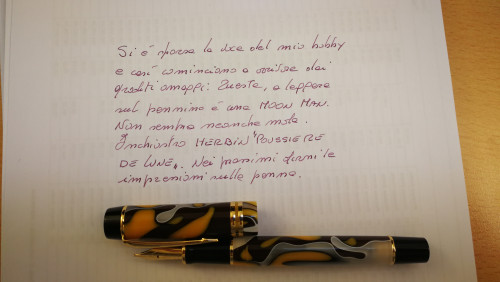 Si è sparsa la voce del mio hobby
e così cominciano a arrivare dei
graditi omaggi. Questa, a leggere
sul pennino è una MOON MAN.
Non sembra neanche male.
Inchiostro HERBIN "POUSSIERE
DE LUNE". Nei prossimi giorni le
impressioni sulla penna.